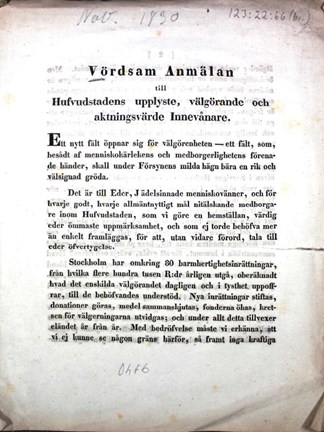 Nov. 1830
123:22:66(br.)
Vördsam Anmälan
till
Hufvudstadens upplyste, välgörande och
aktningsvärde Innevånare.
Ett nytt fält öppnar sig för välgörenheten — ett fält, som,
besådt af menniskokärlekens och medborgerlighetens förena-
de händer, skall under Försynens milda hägn bära en rik och
välsignad gröda.
Det är till Eder, J ädelsinnade menniskovänner, och för
hvarje godt, hvarje allmännyttigt mål nitälskande medborga-
re inom Hufvudstaden, som vi göre en hemställan, värdig
eder ömmaste uppmärksamhet, och som ej torde behöfva mer
än enkelt framläggas, för att, utan vidare förord, tala till
eder öfvertygelse.
Stockholm har omkring 80 barmhertighetsinrättningar,
från hvilka flere hundra tusen R:dr årligen utgå, oberäknadt
hvad det enskilda välgörandet dagligen och i tysthet uppoff-
rar, till de behöfvandes understöd. Nya inrättningar stiftas,
donationer göras, medel sammanskjutas, fonderna ökas, kret-
sen för välgerningarna utvidgas; och under allt detta tillvexer
eländet år från år. Med bedröfvelse måste vi erkänna, att
vi ej kunne se någon gräns härför, så framt inga kraftiga